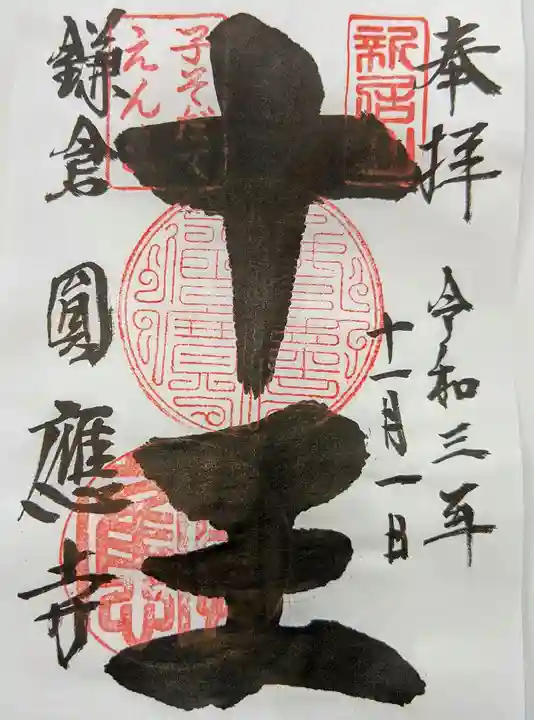 奉拝
令和三年
十一月一日
十王
鎌倉圓應寺
新居山
子そだて
えん